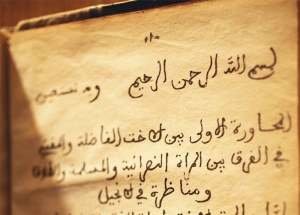 بسم الله الرحمن الرحيم وبه نستعين
المحاورة الاولى بين الاخت الفاضلة
في الفرق بين المراة النصرانية والمسلمة
ومناظرة في الانجيل